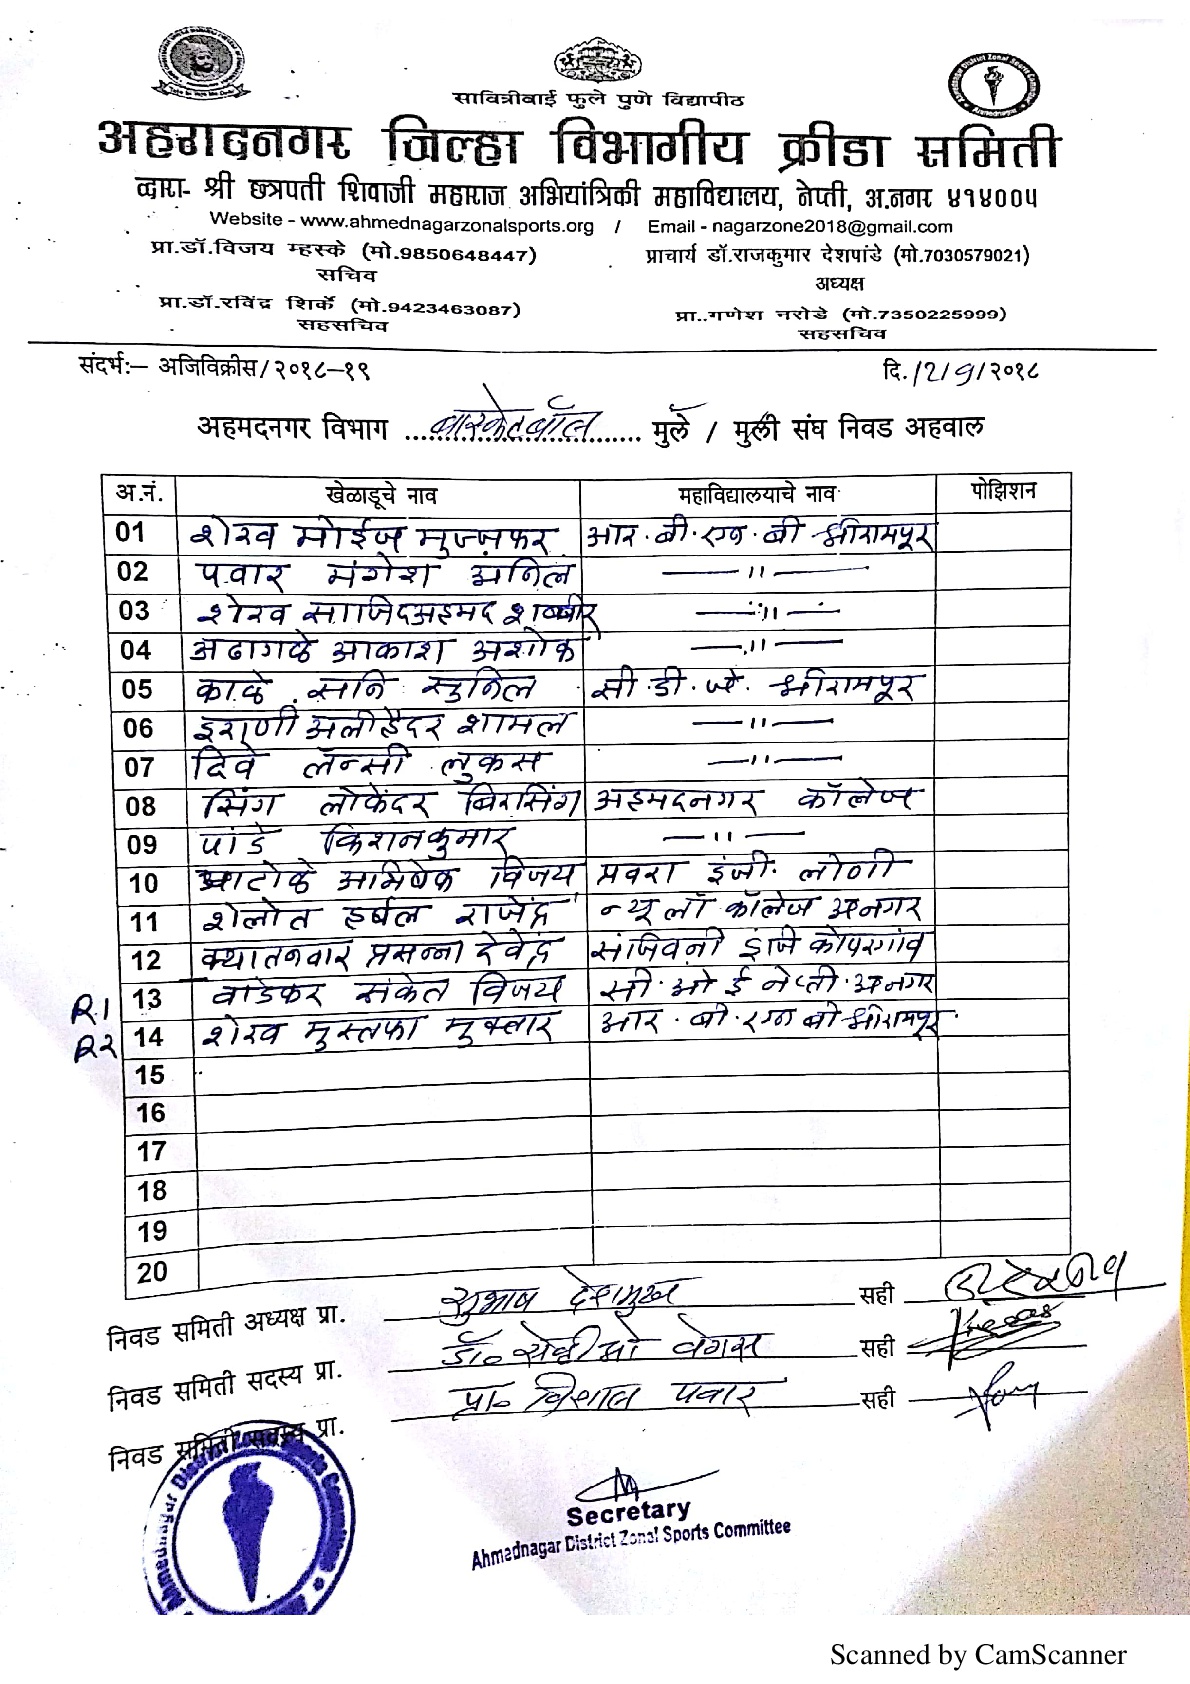 सावित्रीबाई फुले पुणे विद्यापीठ
अहमदनगर जिल्हा विभागीय क्रीडा समिती
व्दारा- श्री छत्रपती शिवाजी महाराज अभियांत्रिकी महाविद्यालय, नेप्ती, अ.नगर ४१४००५
Website - www.ahmednagarzonalsports.org / Email - nagarzone2018@gmail.com
प्रा.डॉ.विजय म्हस्के (मो.9850648447) प्राचार्य डॉ.राजकुमार देशपांडे (मो.7030579021)
सचिव अध्यक्ष
प्रा.डॉ.रविंद्र शिर्के (मो.9423463087) प्रा..गणेश नरोडे (मो.7350225999)
सहसचिव सहसचिव
संदर्भ:– अजिविक्रीस/२०१८–१९ दि.12/9/२०१८
अहमदनगर विभाग बास्केटबॉल मुले / मुली संघ निवड अहवाल
अ.नं. खेळाडूचे नाव महाविद्यालयाचे नाव पोझिशन
01 शेख मोईज मुज्जफर आर.बी.एन.बी श्रीरामपूर
02 पवार मंगेश अनिल —〃—
03 शेख साजिदअहमद शब्बीर —〃—
04 अढागळे आकाश अशोक —〃—
05 काळे सनि सुनिल सी.डी.जे. श्रीरामपूर
06 इराणी अलीहैदर शामल —〃—
07 दिवे लॅन्सी लुकस —〃—
08 सिंग लोकेंदर बिरसिंग अहमदनगर कॉलेज
09 पांडे किशनकुमार —〃—
10 अभिषेक विजय प्रवरा इंजी. लोणी
11 शेलोत हर्षल राजेंद्र न्यू लॉ कॉलेज अ.नगर
12 क्यातनवार प्रसन्ना देवेंद्र संजिवनी इंजि कोपरगांव
R.1 13 वांढेकर संकेत विजय सी.ओ ई नेप्ती.अ.नगर
R2 14 शेख मुस्तफा मुक्तार आर.बी.एन बी श्रीरामपूर
15
16
17
18
19
20
निवड समिती अध्यक्ष प्रा. सुभाष देशमुख सही
निवड समिती सदस्य प्रा. डॉ. सही
निवड समिती सदस्य प्रा. प्रा. विशाल पवार सही
Secretary
Ahmednagar District Zonal Sports Committee
Scanned by CamScanner